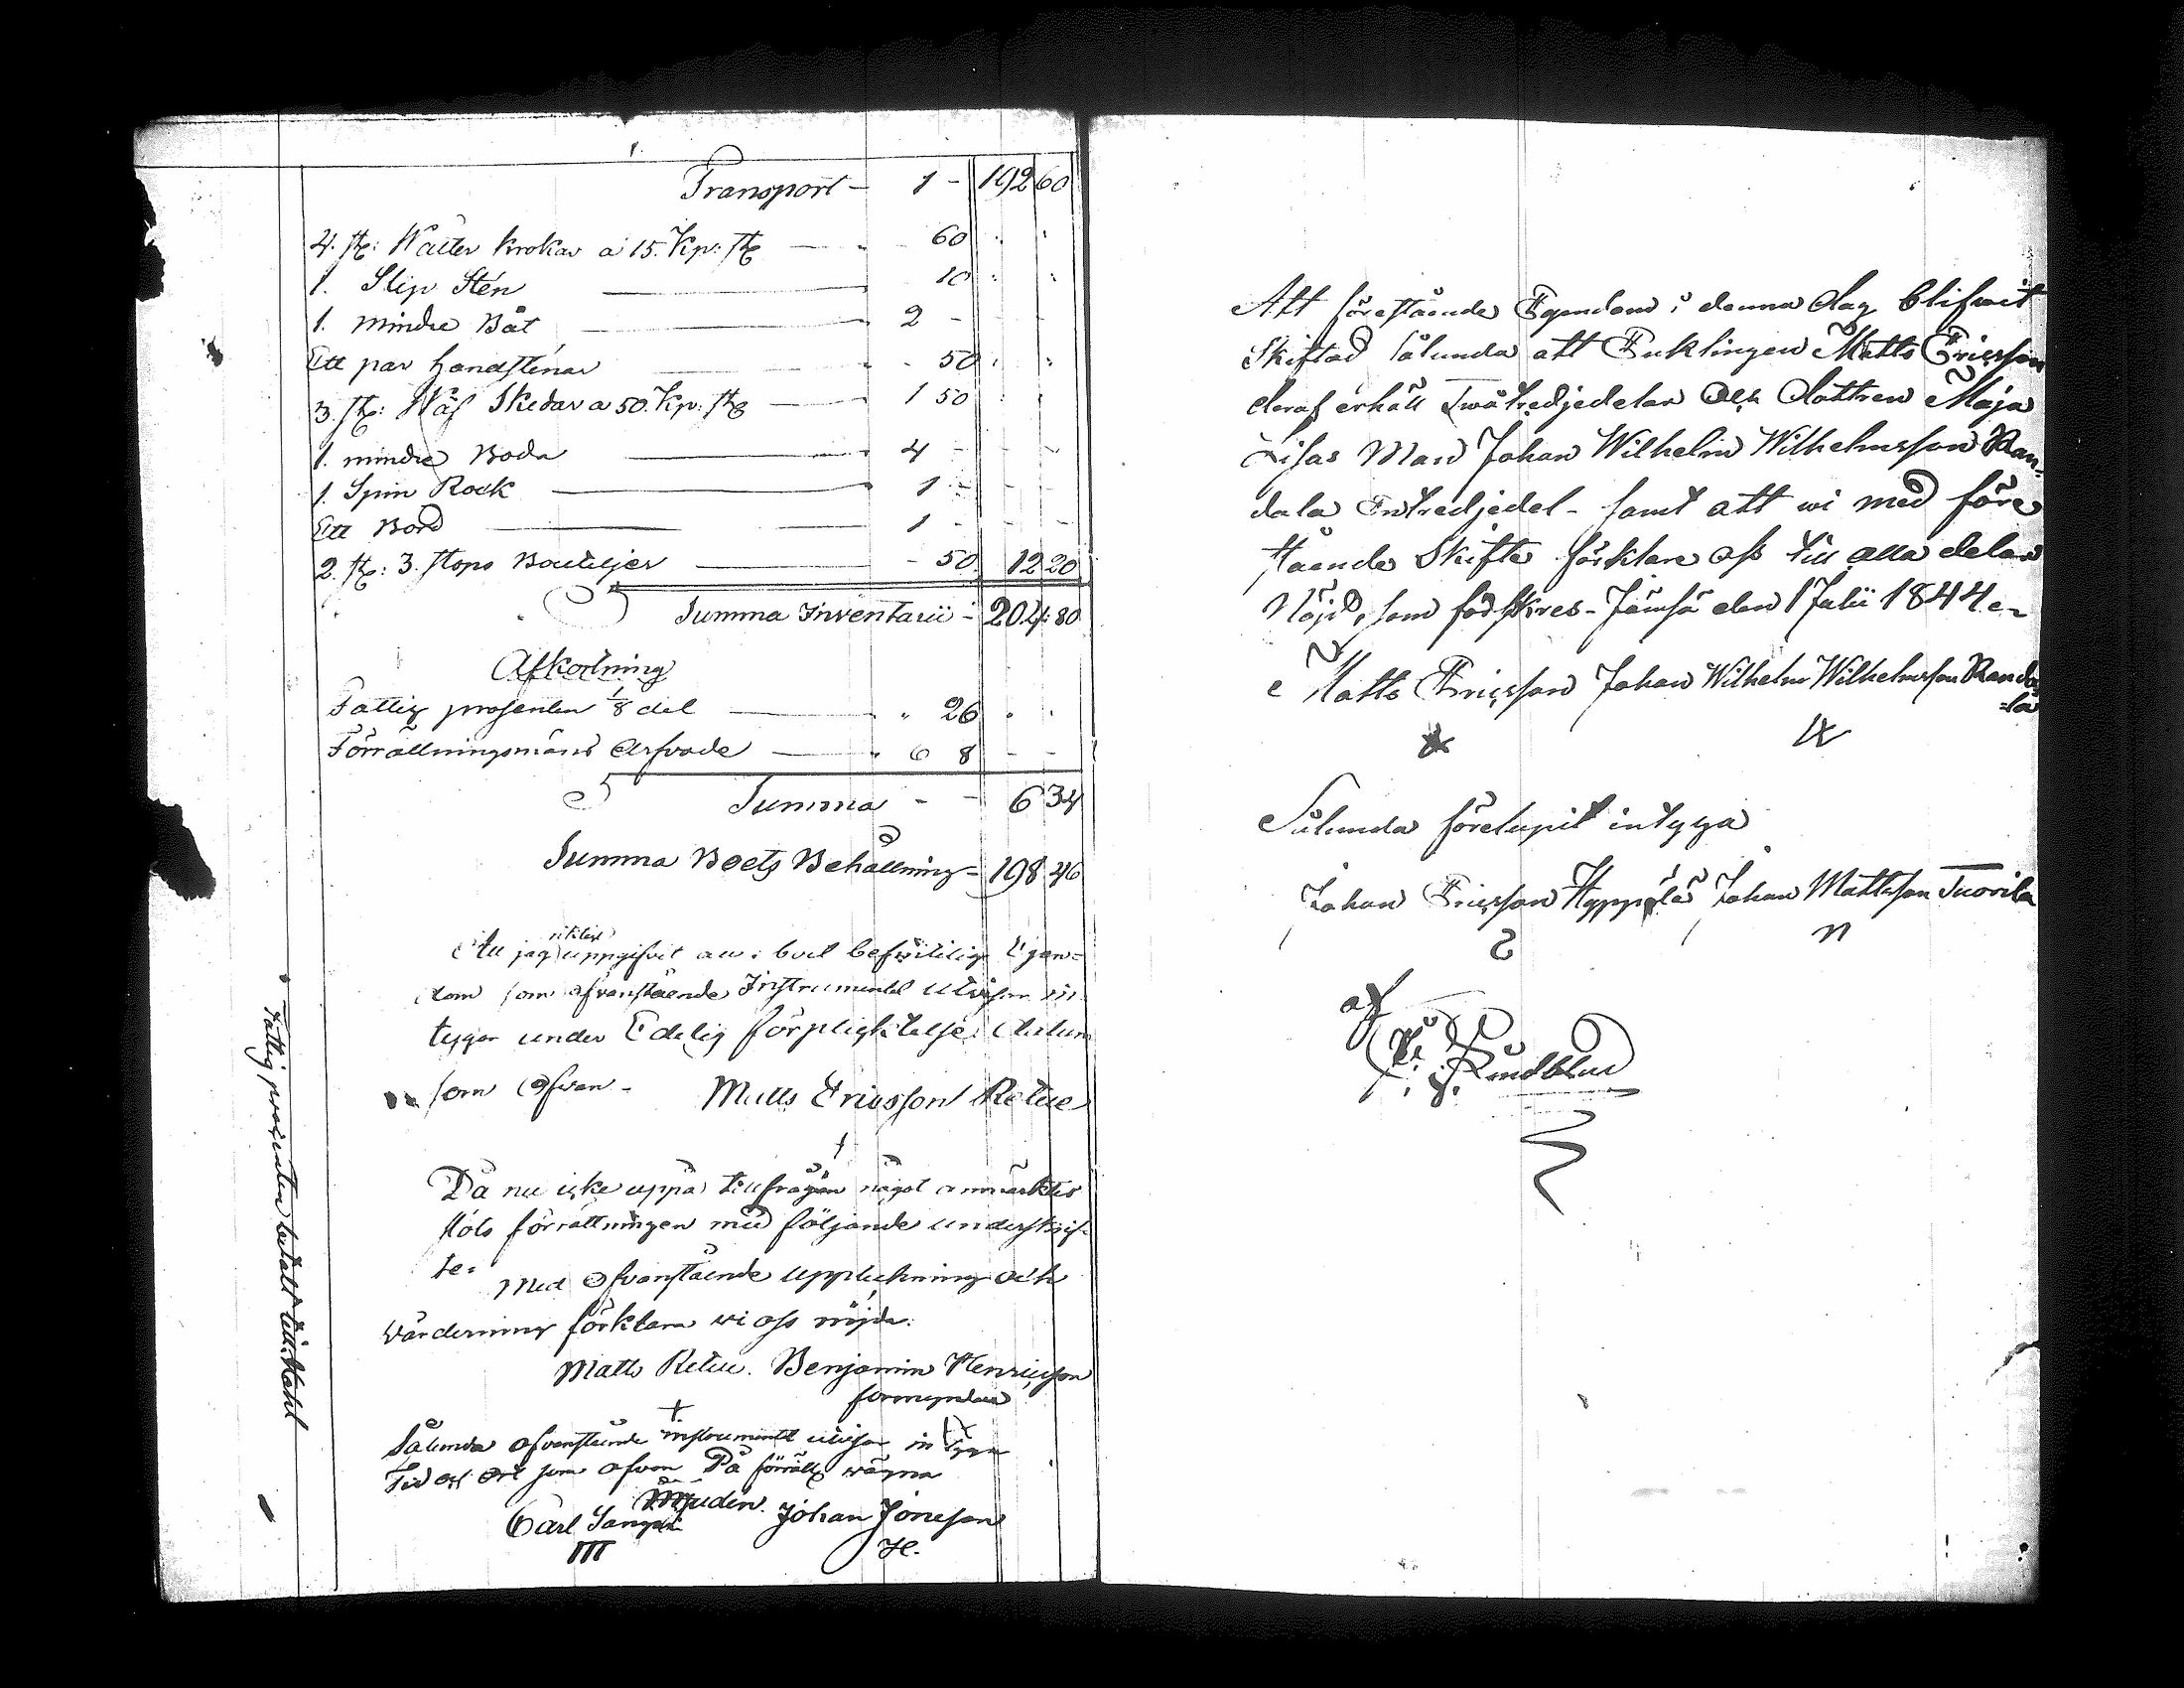 Transport - 1 - 192 60
4. st: Watter krokar a 15. Kp: st - 60
1. Slip Sten - 10
1. mindre Båt - 2 -
Ett par handstenar - 50
3. st: Wäf Skedar a 50. Kp: st - 1 50
1. mindre Boda - 4 -
1. Spin Rock - 1 -
Ett Bord - 1 -
2. st: 3. stops Bouteljer - 50 12 20
Summa Inventarii - 204: 80
Afkortning
Fattig prosenten 1/8 del - " 26
Förrättningsmäns Arfvode - " 6 8
Summa - - 6 34
Summa Boets Behållning = 198 46
Att jag riktigt uppgifvit all i boet befintelig Egen=
dom som ofvanstående Instrumentet utvisar in
tygar under Edelig förpligktelse. Datum
som Ofvan - Matts Ericsson Retue
Då nu icke uppå tillfrågan något anmärktes
slöts förrättningen med följande underskrif=
te=
Med Ofvanstående uppteckning och
värdering förklara vi oss nöjda:
Matts Retue. Benjamin Henricsson
formyndare
Sålunda ofvanstående instrumentet utvisar in tyga
Tid och Ort som ofvan På förrättg vägna
Carl Johan Jönsson
III JC.
Fattig prosenten betalt till
Att förestående Egendom i denna dag blifvit
Skiftad sålunda att Enklingen Matts Ericsson
deraf erhåll Twåtredjedelar Och dottren Maja
Lisas Man Johan Wilhelm Wilhelmsson Ran=
dala Entredjedel - samt att wi med före
stående Skifte förklare oss till alla delar
Nöjd, som försskres - Jämsä den 1 Julii 1844.
Matts Ericsson Johan Wilhelm Wilhelmsson Randa
=la
Sålunda förelupit intyga
Johan Ericsson Hyppölä Johan Mattsson Tuovila
af
J. Lundblad